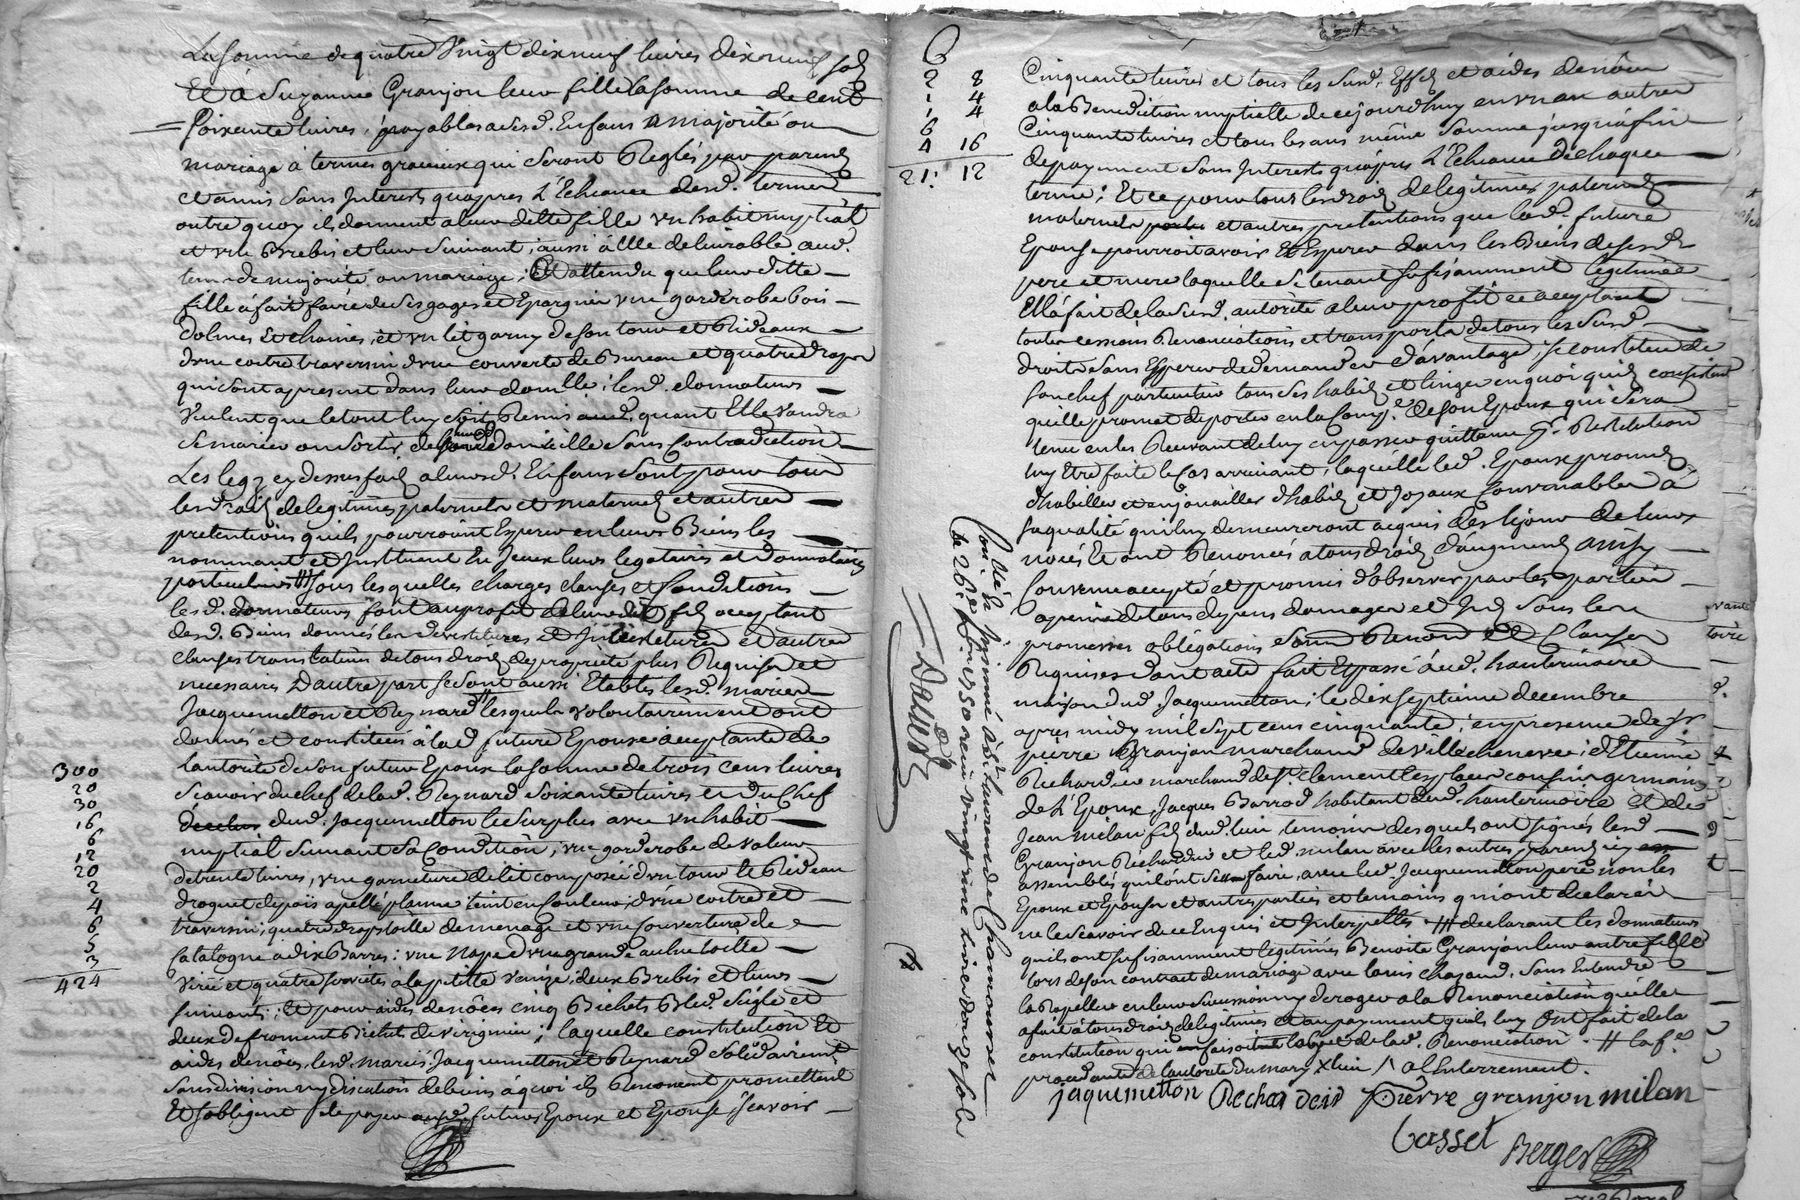 La somme de quatre Vingt dixneuf livres dixneuf sols
Et à Suzanne Granjon leur fille la somme de cent
soixante livres, payables a sesd. Enfans a majorité ou
mariage à termes gracieux qui seront Reglés par parens
et amis sans Interests quapres L'Echeance desd. termes
outre quoy ils donnent a leur ditte fille un habit nuptial
et une Brebis et leur suivant, aussi à Elle delivrable aud.
tems de majorité ou mariage; Et attendu que leur ditte
fille à fait faire de ses gages et Epargnes une garderobe bois
dolmes et chaines, et un lit garny de son tour et Rideaux
d'une coitre traversin d'une couverte de Bureau et quatre draps
qui sont apresent dans leur domille; lesd. donnateurs
Veulent que le tout luy soit Remis aud. quant Elle Vandra
Se marier ou sortir de leurd. domicille sans Contradiction
Les legs cy dessus faits a leursd. Enfans sont pour tous
les droits de legitimes paternels et maternels et autres
pretentions quils pourroint Esperer en leurs Biens les
nommant et Instituent En Jceux leurs legataires et Donnataires
particuliers # sous lesquelles charges clauses et Conditions
lesd. donnateurs font au profit de leurdit fils acceptant
desd. Biens donnés les devestitures et Investitures et autres
Clauses translatives de tous droits de propriété plus Requises et
necessaires D'autre part se sont aussi Etablis lesd. mariés
Jacquemetton et Reynard lesquels volontairement ont
donné et constitué à lad. future Epouse acceptante de
lautorité de son futur Epoux la somme de trois cens livres
scavoir du chef de lad. Reynard soixante livres et du Chef
dud. Jacquemetton le surplus avec un habit
nuptial suivant sa Condition, une garderobe de valeur
de trente livres, une garniture de lit composée d'un tour le Rideau
droguet depois apellé planne teint en Couleur, d'une coitre et
traversin, quatre draps toille de menage et une Couverture de
Catalogne a dix Barres; une Nape d'une grande aulne toille
Virée et quatre serviettes à la petitte Venize; deux Brebis et leurs
suivants; Et pour aides de nôces cinq Bichets Bled Seigle et
deux de froment Bichet de Virignieu; laquelle constitution Et
aides de nôces, lesd. mariés Jacquemetton et Reynard solidairement
sans division ny discution de biens à quoi ils Renoncent promettent
Et sobligent de payer auxd. futurs Epoux et Epouse scavoir
300
20
30
16
6
12
20
2
4
6
5
3
424
6
2 8
1 4
1 4
6
4 16
21: 12
Cinquante livres et tous les susd. Effets et aides de nôces
a la Benediction nuptielle de ce jourdhuy en un an autres
Cinquante livres et tous les ans même somme jusquà fin
de payement sans Interests quàpres L'Echeance de chaque
terme; Et ce pour tous les droits de legitimes paternels
maternels et autres pretentions que lad. future
Epouse pourroit avoir Et Esperer dans les Biens de sesd.
pere et mere laquelle se tenant sufisamment legitimée
Ell'à fait de la susd. autorité a leur profit ce acceptant
toutes cessions Renonciations et transports de tous les susd.
droits sans Esperer de demander d'avantage; se constitue de
son chef particulier tous ses habits et linges en quoi quils consistent
quelle promet de porter en la Comp.e de son Epoux qui sera
tenu en les Recevant de luy en passer quittance p.r Restitution
luy Etre faite le Cas arrivant, laquelle led. Epoux promet
d'habiller et enjouailler d'habits et Joyaux Convenables à
sa qualité qui luy demeureront acquis des le jour de leurs
noces Et ont Renoncés a tous droits d'augment ainsy
Convenu accepté et promis d'observer par les parties
a peine de tous depens domages et Jnts. sous les
promesses obligations Renond. et Clauses
Requises dont acte fait Et passé aud. hauterivoire
maison dud. Jacquemetton, le dix septieme decembre
apres midy mil sept cens cinquante, en presence de Sr.
pierre Granjon marchand de Villechenéve; d'Etienne
Richardier marchand de St. clement les places cousin germain
de L'Epoux, Jacques Barrod habitant dud. hauterivoire et de
Jean milan fils dud. lieu temoins desquels ont signés lesd.
Granjon Richardier et led. milan avec les autres parens icy
assemblés qui l'ont sceu faire, avec led. Jacquemetton pere non les
Epoux et Epouse et autres parties et temoins qui ont declarés
ne le scavoir de ce Enquis et Interpellés. # declarant les donnateurs
quils ont sufisamment legitimés Benoite Granjon leur autre fille
lors de son contrat de mariage avec louis chazaud, sans Entendre
la Rapeller en leur succession ny deroger a la Renonciation quelle
a fait à tous droits de legitimes et au payement quils luy ont fait de la
constitution qui faisoit lobjet de lad. Renonciation. # la fe.
procedante de lautorité du mary X lui /\ al Enterrement.
jaquemetton Richar deir Piérre granjon milan
Casset Berger
Con.lé & Insinué à St Laurent de Chamousset
le 26e Xbre 1750 Recu vingt une livre douze sols
Dauss